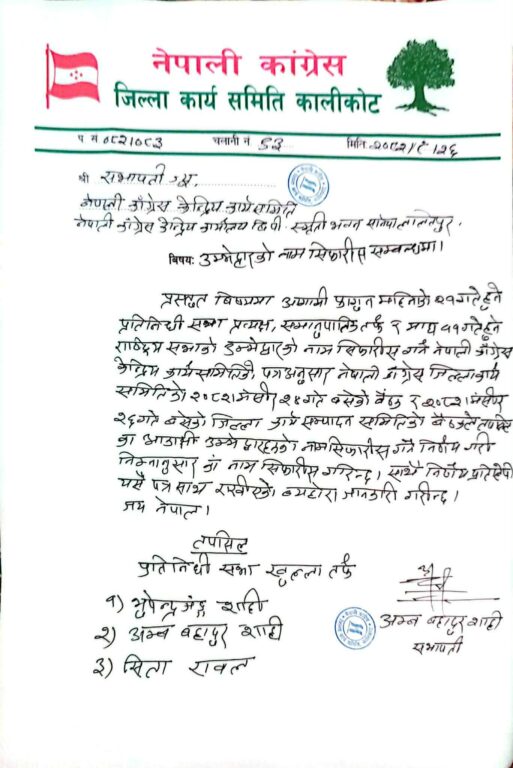 नेपाली कांग्रेस
जिल्ला कार्य समिति कालीकोट
प सं ०८२।०८३ चलानी नं ८३ मिति २०८२।९।२६
श्री सभापती ज्यू,
नेपाली काँग्रेस केन्द्रिय कार्यसमिति
नेपाली काँग्रेस केन्द्रिय कार्यालय बि.पी. स्मृती भवन सानेपा ललितपुर,
विषयः उम्मेद्वारको नाम सिफारीस सम्बन्धमा।
प्रस्तुत बिषयमा आगामी फागुन महिनाको २१ गते हुने
प्रतिनिधी सभा प्रत्यक्ष, समानुपातिक तर्फ र माघ ११ गते हुने
राष्ट्रिय सभाको उम्मेद्वारको नाम सिफारीस गर्ने नेपाली काँग्रेस
केन्द्रिय कार्य समितिको पत्र अनुसार नेपाली काँग्रेस जिल्ला कार्य
समितिको २०८२ पौष २४ गते बसेको बैठक र २०८२ पौष
२६ गते बसेको जिल्ला कार्य सम्पादन समितिको बैठकले तपसिल
का आकांक्षी उम्मेद्वारहरुको नाम सिफारीस गर्ने निर्णय गरी
निम्नानुसार को नाम सिफारीस गरिन्छ। साथै निर्णय प्रतिलिपी
यसै पत्र साथ राखीएको ब्यहोरा जानकारी गरीन्छ।
जय नेपाल।
तपसिल
प्रतिनिधी सभा खुल्ला तर्फ
१) भुपेन्द्र जंङ्ग शाही
२) अम्ब बहादुर शाही
३) सिता रावल
अम्ब बहादुर शाही
सभापती